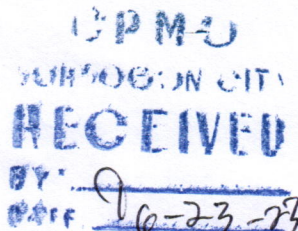 CPMU
SORSOGON CITY
RECEIVED
BY:
DATE 6-23-23